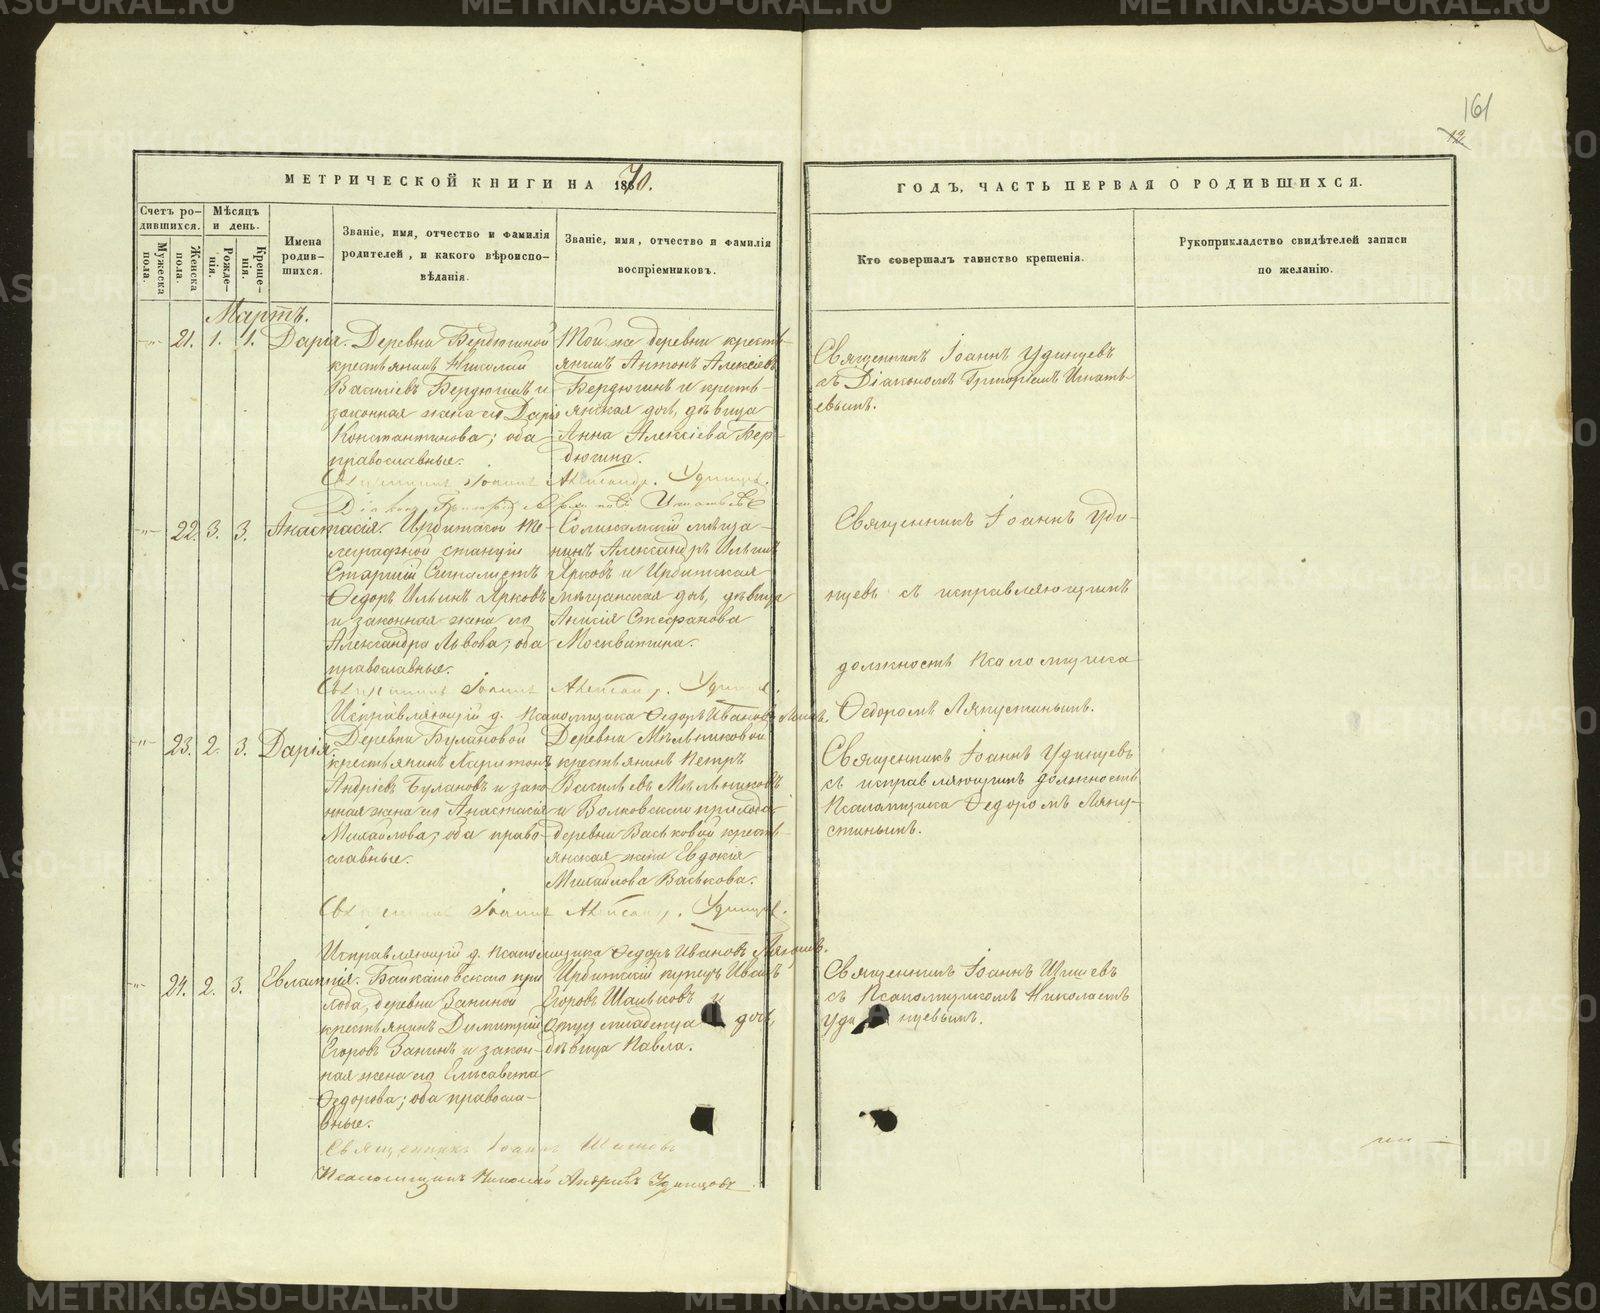 METRIKI.GASO-URAL.RU
161
12
МЕТРИЧЕСКОЙ КНИГИ НА 1870.
ГОДЪ, ЧАСТЬ ПЕРВАЯ О РОДИВШИХСЯ.
Счетъ родившихся.
Мужеска пола.
Женска пола.
Мѣсяцъ и день.
Рожденія.
Крещенія.
Имена родившихся.
Званіе, имя, отчество и фамилія родителей, и какого вѣроисповѣданія.
Званіе, имя, отчество и фамилія воспріемниковъ.
Кто совершалъ таинство крещенія.
Рукоприкладство свидѣтелей записи по желанію.
Мартъ.
21. 1. 1. Дарія.
Деревни Бердюгиной
крестьянинъ Николай
Василіевъ Бердюгинъ и
законная жена его Дарія
Константинова; оба
православные.
Той же деревни кресть-
янинъ Антонъ Алексіевъ
Бердюгинъ и кресть-
янская дочь, дѣвица
Анна Алексіева Бер-
дюгина.
Священникъ Іоаннъ Удинцевъ
съ Діакономъ Григоріемъ Игнать-
евымъ.
Священникъ Іоаннъ Александр. Удинцевъ.
22. 3. 3. Анастасія.
Ирбитской те-
леграфной станціи
Старшій Сигналистъ
Ѳедоръ Ильинъ Ярковъ
и законная жена его
Александра Львова; оба
православные.
Соликамскій мѣща-
нинъ Александръ Ильинъ
Ярковъ и Ирбитская
мѣщанская дочь, дѣвица
Анисія Стефанова
Москвитина.
Священникъ Іоаннъ Уди-
нцевъ съ исправляющимъ
должность Псаломщика
Ѳедоромъ Ляпустинымъ.
Священникъ Іоаннъ Александр. Удинцев.
Исправляющій д. Псаломщика Ѳедоръ Ивановъ
23. 2. 3. Дарія.
Деревни Булановой
крестьянинъ Харитонъ
Андріевъ Булановъ и зако-
нная жена его Анастасія
Михайлова; оба право-
славные.
Деревни Мѣльниковой
крестьянинъ Петръ
Василіевъ Мѣльниковъ
и Волковскаго прихода
деревни Васьковой кресть-
янская жена Евдокія
Михайлова Васькова.
Священникъ Іоаннъ Удинцевъ
съ исправляющимъ должность
Псаломщика Ѳедоромъ Ляпу-
стинымъ.
Священникъ Іоаннъ Александр. Удинцев.
Исправляющій д. Псаломщика Ѳедоръ Ивановъ
24. 2. 3. Евлампія.
Байкаловскаго при
хода, деревни Заниной
крестьянинъ Димитрій
Егоровъ Занинъ и закон-
ная жена его Елисавета
Ѳедорова; оба правосла-
вные.
Ирбитскій купецъ Иванъ
Егоровъ и
отцу младенца дочь,
дѣвица Павла.
Священникъ Іоаннъ
съ Псаломщикомъ Николаемъ
Удинцевымъ.
Священникъ Іоаннъ
Псаломщикъ Николай Андріевъ Удинцовъ